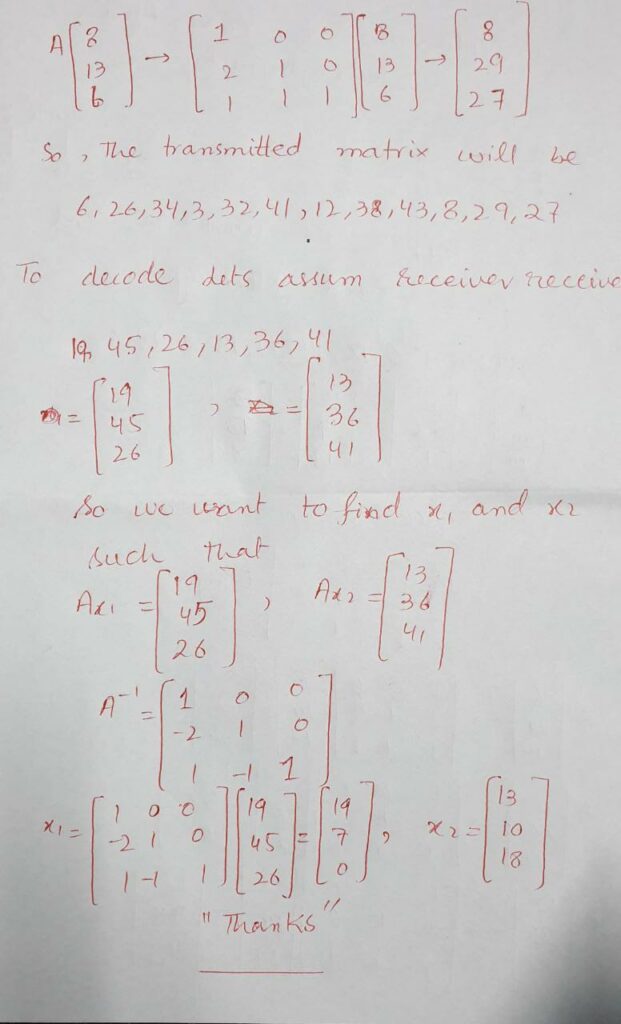 A [8 13 6] → [1 0 0 2 1 0 1 1 1] [8 13 6] → [8 29 27]
So, The transmitted matrix will be
6, 26, 34, 3, 32, 41, 12, 38, 43, 8, 29, 27
To decode dets assum receiver receive
19, 45, 26, 13, 36, 41
= [19 45 26] , = [13 36 41]
So we want to find x₁ and x₂
such that
Ax₁ = [19 45 26] , Ax₂ = [13 36 41]
A⁻¹ = [1 0 0 -2 1 0 1 -1 1]
x₁ = [1 0 0 -2 1 0 1 -1 1] [19 45 26] = [19 7 0] , x₂ = [13 10 18]
"Thanks"